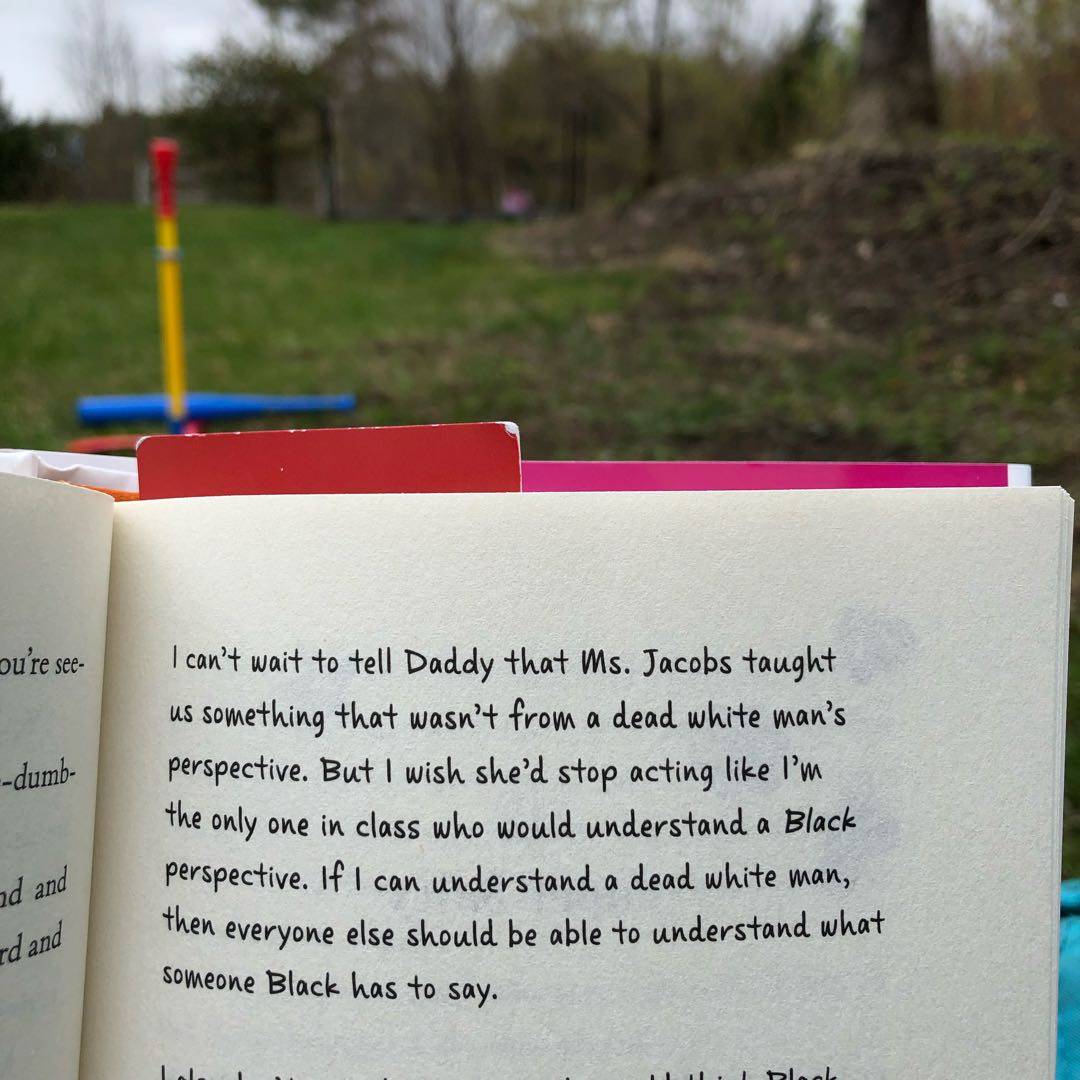 ou're see-
-dumb-
nd and
rd and
I can't wait to tell Daddy that Ms. Jacobs taught
us something that wasn't from a dead white man's
perspective. But I wish she'd stop acting like I'm
the only one in class who would understand a Black
perspective. If I can understand a dead white man,
then everyone else should be able to understand what
someone Black has to say.